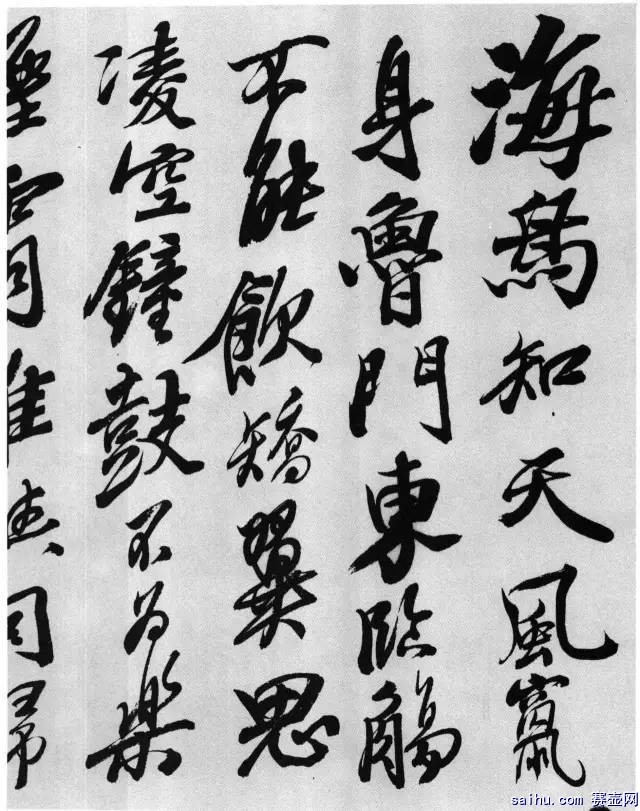 海鳥知天風竄
身魯門東臨觴
不能飲矯翼思
凌空鐘鼓不为樂
煙霜誰與同歸
saihu.com 赛壶网